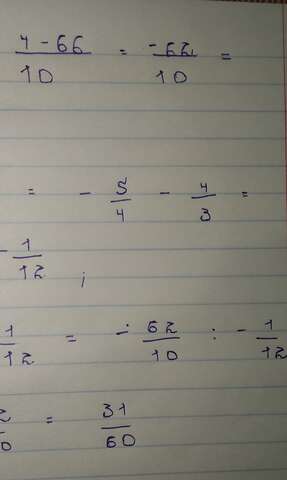 4 - 66 / 10 = -62 / 10 =
= - 5/4 - 4/3 =
- 1/12 ;
1/12 = - 62/10 : - 1/12
= 31/60